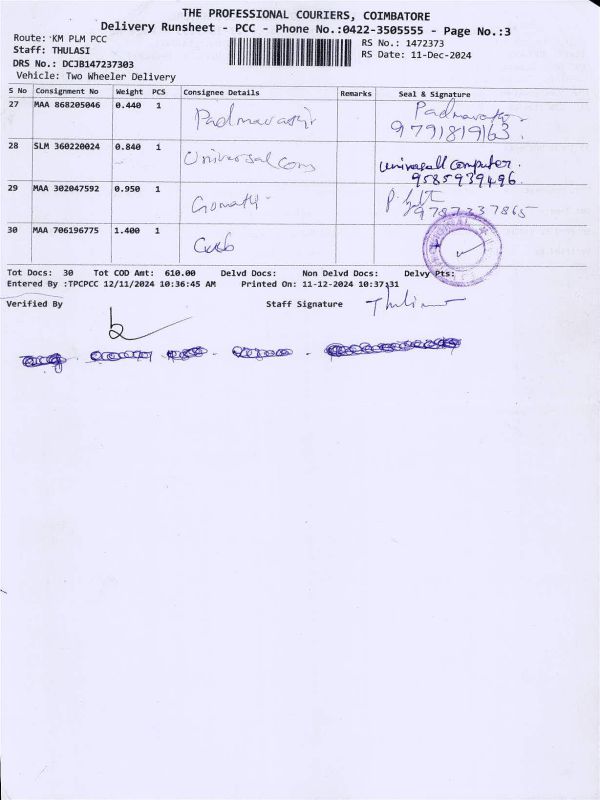 THE PROFESSIONAL COURIERS, COIMBATORE
Delivery Runsheet - PCC - Phone No.:0422-3505555 - Page No.:3
Route: KM PLM PCC
RS No.: 1472373
Staff: THULASI
RS Date: 11-Dec-2024
DRS No.: DCJB147237303
Vehicle: Two Wheeler Delivery
S No Consignment No Weight PCS Consignee Details Remarks Seal & Signature
27 MAA 868205046 0.440 1 Padmavathi Padmavathi
9791819163.
28 SLM 360220024 0.840 1 Universal Com Universall Computer.
9585939496.
29 MAA 302047592 0.950 1 Gomathi
9787337865
30 MAA 706196775 1.400 1
Tot Docs: 30 Tot COD Amt: 610.00 Delvd Docs: Non Delvd Docs: Delvy Pts:
Entered By :TPCPCC 12/11/2024 10:36:45 AM Printed On: 11-12-2024 10:37:31
Verified By Staff Signature